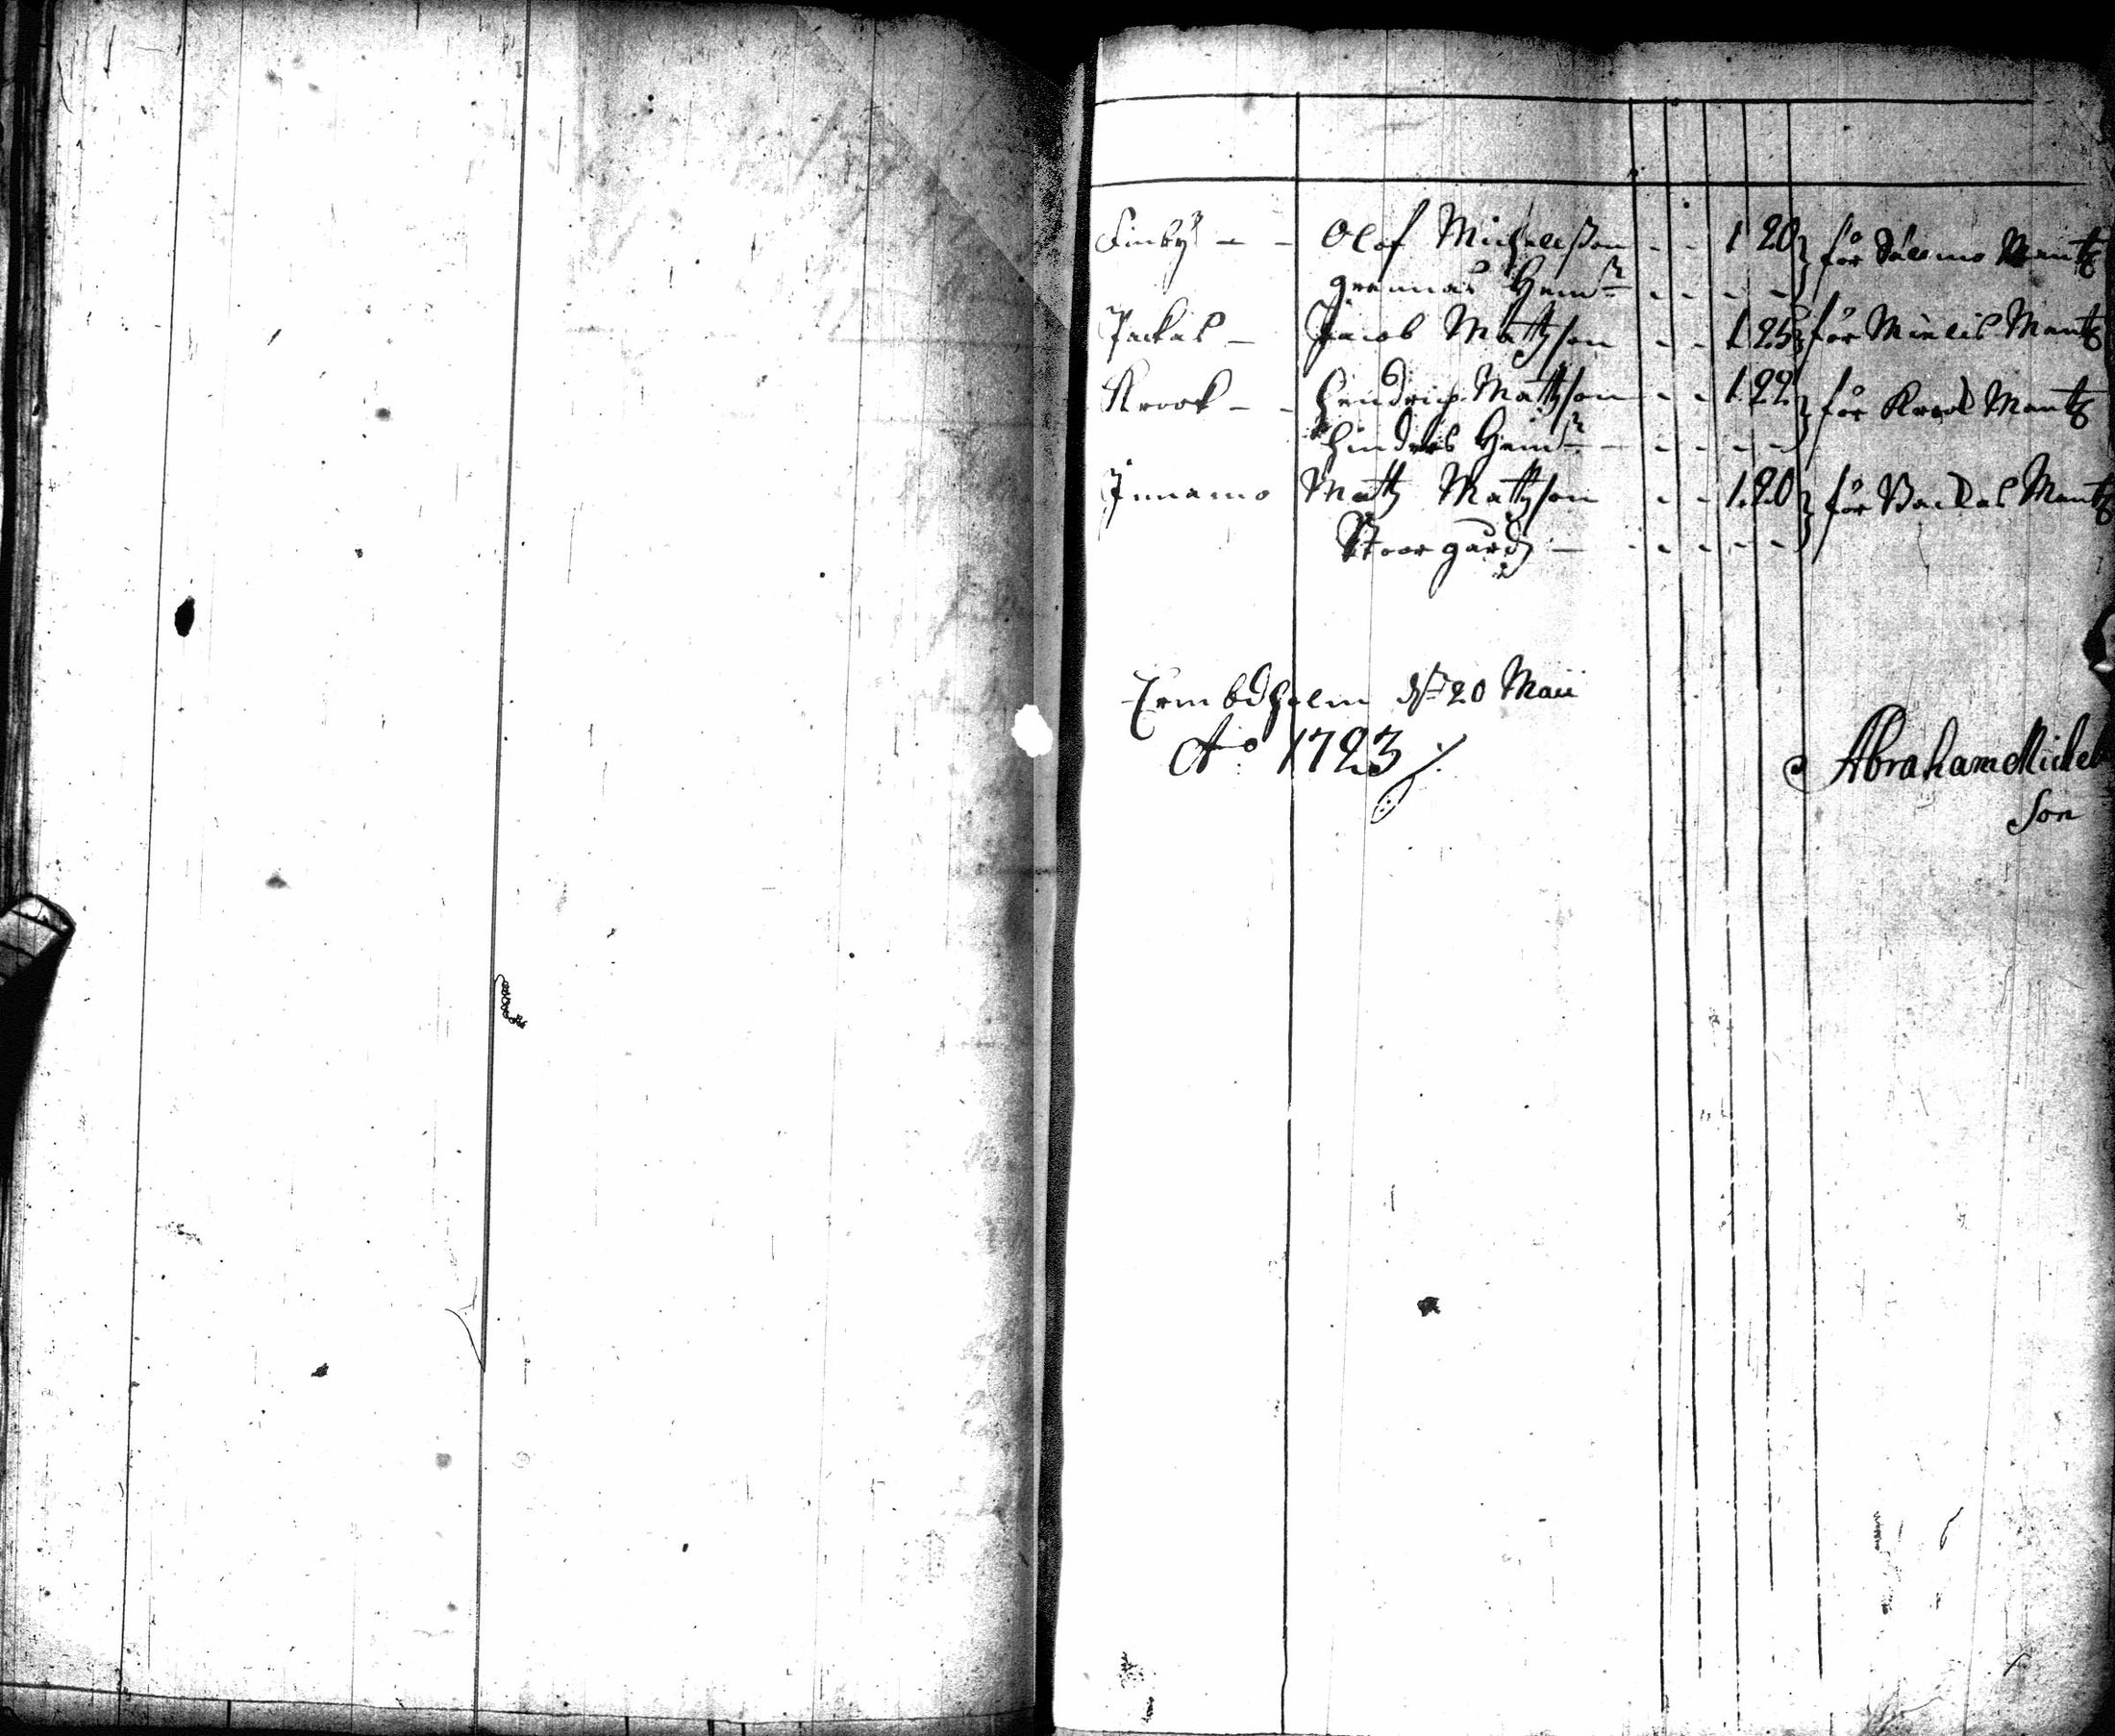 Finby - - Olof Michelsson - - 1 20 } för Salmo Mantz
grannas Hem: - - - -
Packas - Jacob Mattzson - - 1 25 } för Mielis Mantz
Krook - - Hendrich Mattzson - - 1 22 } för Krook Mantz
Hinders Hem: - - - - -
Innamo Mattz Mattzson - - 1 20 } för Backas Mantz
Stoorgård - - - - - -
Ermbdholm d: 20 Maii
A:o 1723
Abraham Michel
Son